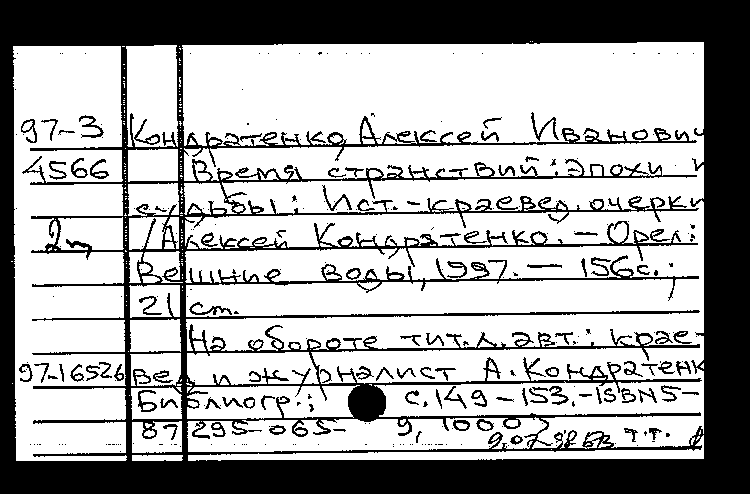 97-3 Кондратенко, Алексей Иванович
4566 Время странствий: Эпохи и
судьбы: Ист.-краевед. очерки
2 /Алексей Кондратенко. — Орел:
Вешние воды, 1997. — 156с.;
21 см.
На обороте тит.л. авт.: крае-
97-16526 вед и журналист А. Кондратенк
Библиогр.; с.149-153.-ISBN5-
87 295-065- 9, 1000)
9.07.98 т.т.